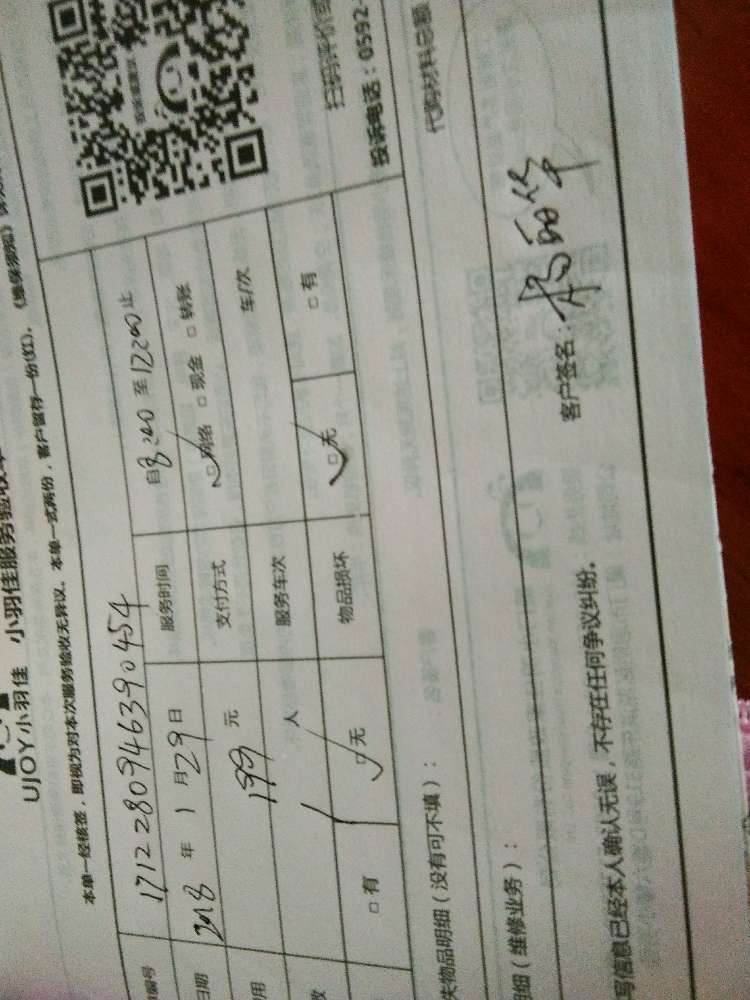 UJOY小羽佳 小羽佳服务验收单
本单一经核签，即视为对本次服务验收无异议。本单一式两份，客户留存一份(红)。《维保须知》
编号 1712280946390454
日期 2018 年 1 月 29 日 服务时间 自 8:00 至 12:00 止
用 199 元 支付方式 ☑网络 □现金 □转账
数 1 人 服务车次 车/次
□有 ☑无 物品损坏 ☑无 □有
扫码评价
投诉电话：0592-
失物品明细（没有可不填）：
代购材料总额
细（维修业务）：
客户签名：
写信息已经本人确认无误，不存在任何争议纠纷。